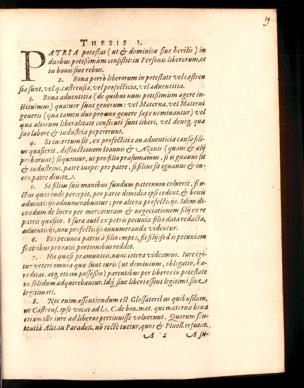 THESIS I.
PATRIA potestas (ut & dominica siue herilis) in
duobus potissimum consistit: in Personis liberorum, at
in bonis siue rebus.
2. Bona porrò liberorum in potestate vel castren
sia sunt, vel q. castrensia, vel profectitia, vel aduentitia.
3. Bona aduentitia (de quibus nunc potissimum agere in-
stituimus) quatuor sunt generum: vel Materna, vel Materni
generis (qua tamen duo pro uno genere sæpe numerantur) vel
qua aliorum liberalitate consecuti sunt liberi, vel deniq. qua
suo labore & industria pepererunt.
4. Si incertum sit, ex profectitia an aduenticia causa filius
quæsierit, distinctionem Ioannis & Azonis (quam & alij
probarunt) sequimur, ut pro filio præsumamus, si is gnauus sit
& industrius, patre inope: pro patre, si filius sit ignauus & in-
ers, patre diuite.
5. Si filius suis manibus fundum paternum coluerit, fru-
ctus quos inde percepit, pro parte dimidia ipsi cedent, & bonis
aduenticijs adnumerabuntur: pro altera profectitijs. Idem di-
cendum de lucro per mercaturam & negociationem filij ex re
patris quæsito. Usura autem ex patris pecunia filio data redacta,
aduenticijs, non profectitijs annumeranda videntur.
6. Res pecunia patris à filio empta, fit filij: sed is pecuniam
fratribus pro rata portionibus reddet.
7. Huiusq. promanitis, nunc cetera videamus. Iure igi-
tur veteri omnia qua sunt iuris (ut dominium, obligatio, hæ-
reditas, atq. etiam possessio) parentibus per liberos in potestate
in solidum adquirebantur. Idq. siue liberi essent legitimi, siue
legitimati.
8. Nec enim assentiendum est Glossatori
ut Castrens. ipse vocat ad l. C. de bon. mat. qui materna bona
etiam illo iure ad liberos pertinuisse voluerunt. Quorum sen-
tentia Alci. in Paradox. non rectè tuetur, quos & Pinell. refutat.
A 2